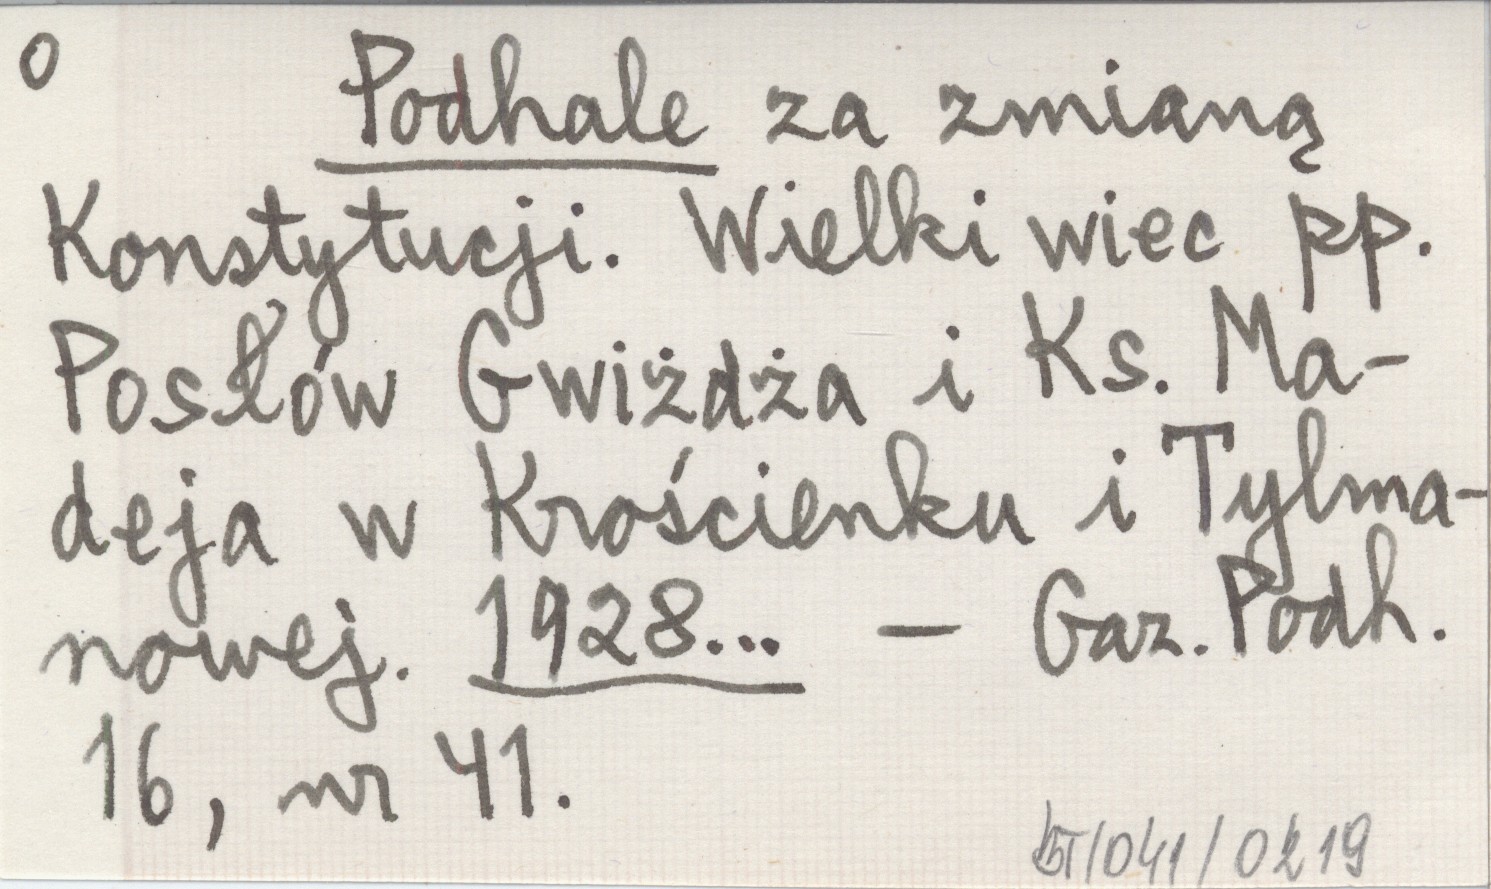 o
Podhale za zmianą
Konstytucji. Wielki wiec pp.
Posłów Gwiżdża i Ks. Ma-
deja w Krościenku i Tylma-
nowej. 1928... — Gaz. Podh.
16, nr 41.
/041/0219